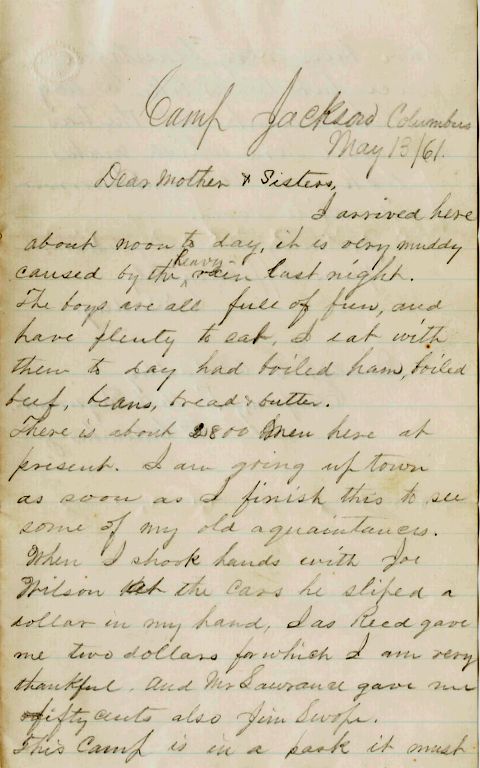 Camp Jackson Columbus
May 13/61.
Dear Mother & Sisters,
I arrived here
about noon to day, it is very muddy
caused by the heavy rain last night.
The boys are all full of fun, and
have plenty to eat, I eat with
them to day had boiled ham, boiled
beef, beans, bread & butter.
There is about 2800 men here at
present. I am going up town
as soon as I finish this to see
some of my old aquaintances.
When I shook hands with Joe
Wilson at the cars he sliped a
dollar in my hand, Jas Reed gave
me two dollars for which I am very
thankful. And Mr Lawrance gave me
fifty cents also Jim Swope.
This Camp is in a park it must